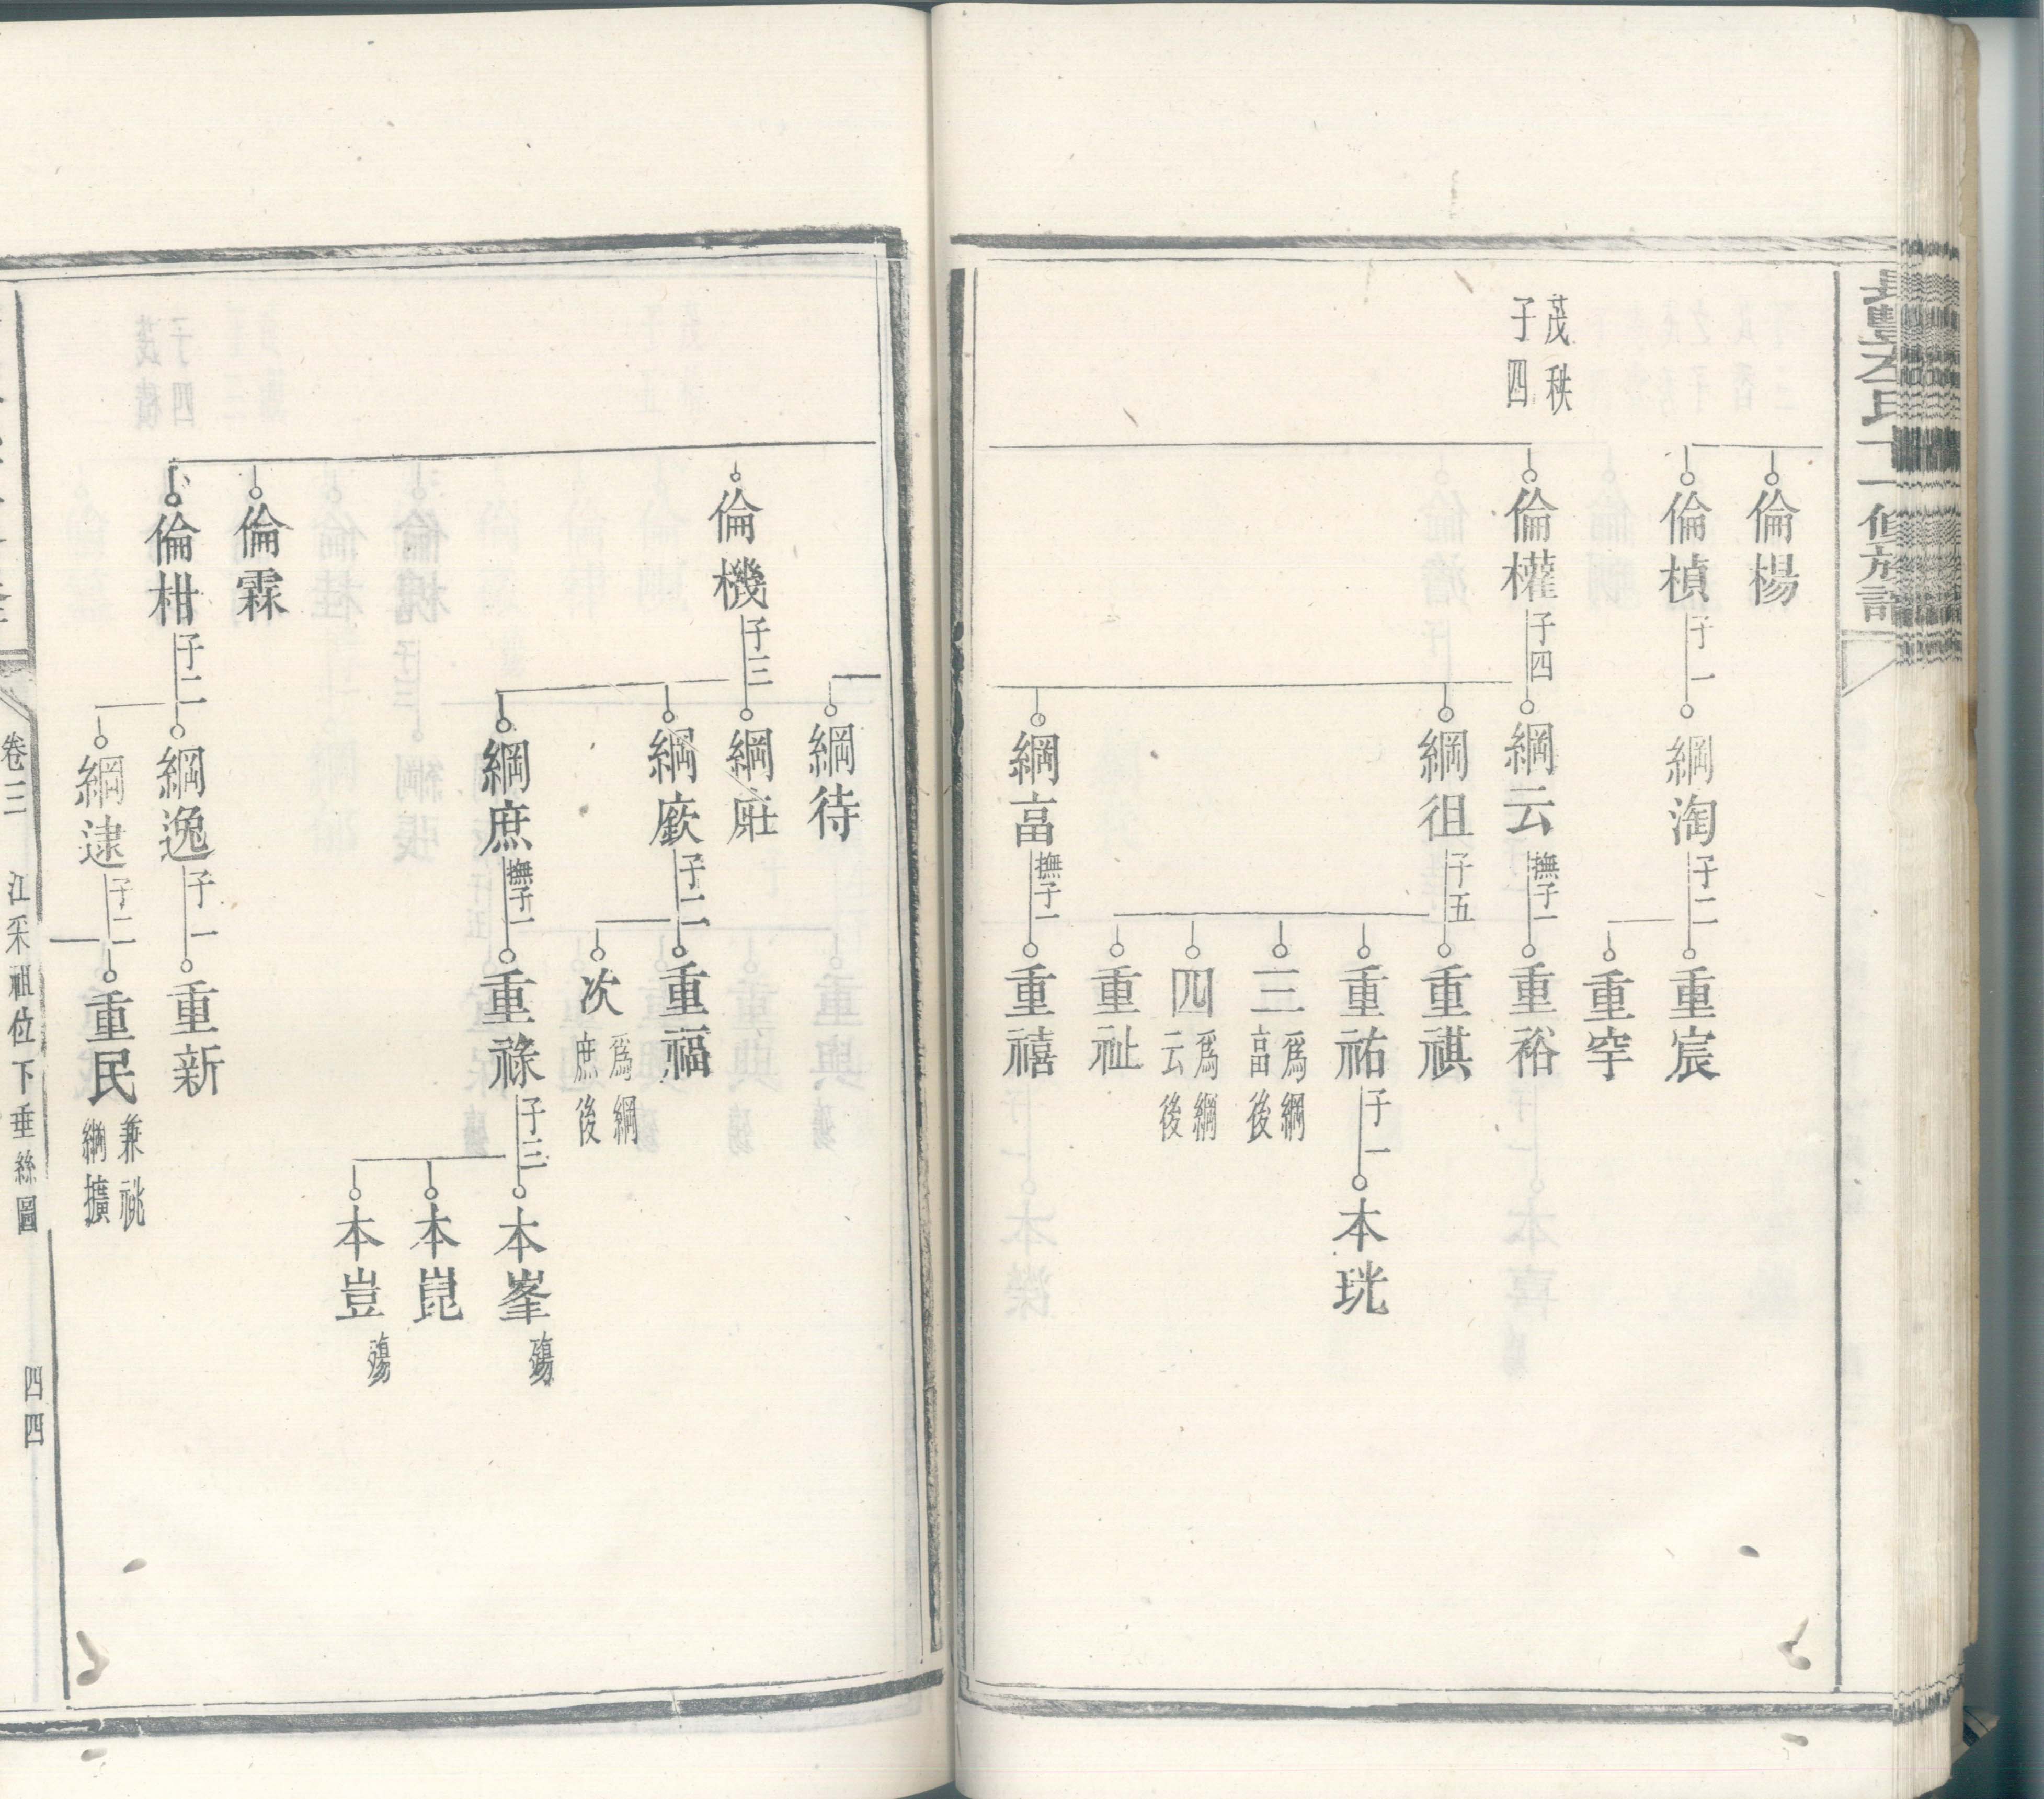 倫楊
倫楨
子一
綱淘
子二
重宸
重宇
茂秩
子四
倫權
子四
綱云
撫子一
重裕
綱徂
子五
重祺
重祐
子一
本珖
三
爲綱
畐後
四
爲綱
云後
重祉
綱畐
撫子一
重禧
綱待
倫機
子三
綱庄
綱廞
子二
重福
次
爲綱
庶後
綱庶
撫子一
重祿
子三
本峯
殤
本崑
本豈
殤
倫霖
倫柑
子二
綱逸
子一
重新
綱逮
子二
重民
兼祧
綱擴
卷三
江采祖位下垂絲圖
四四